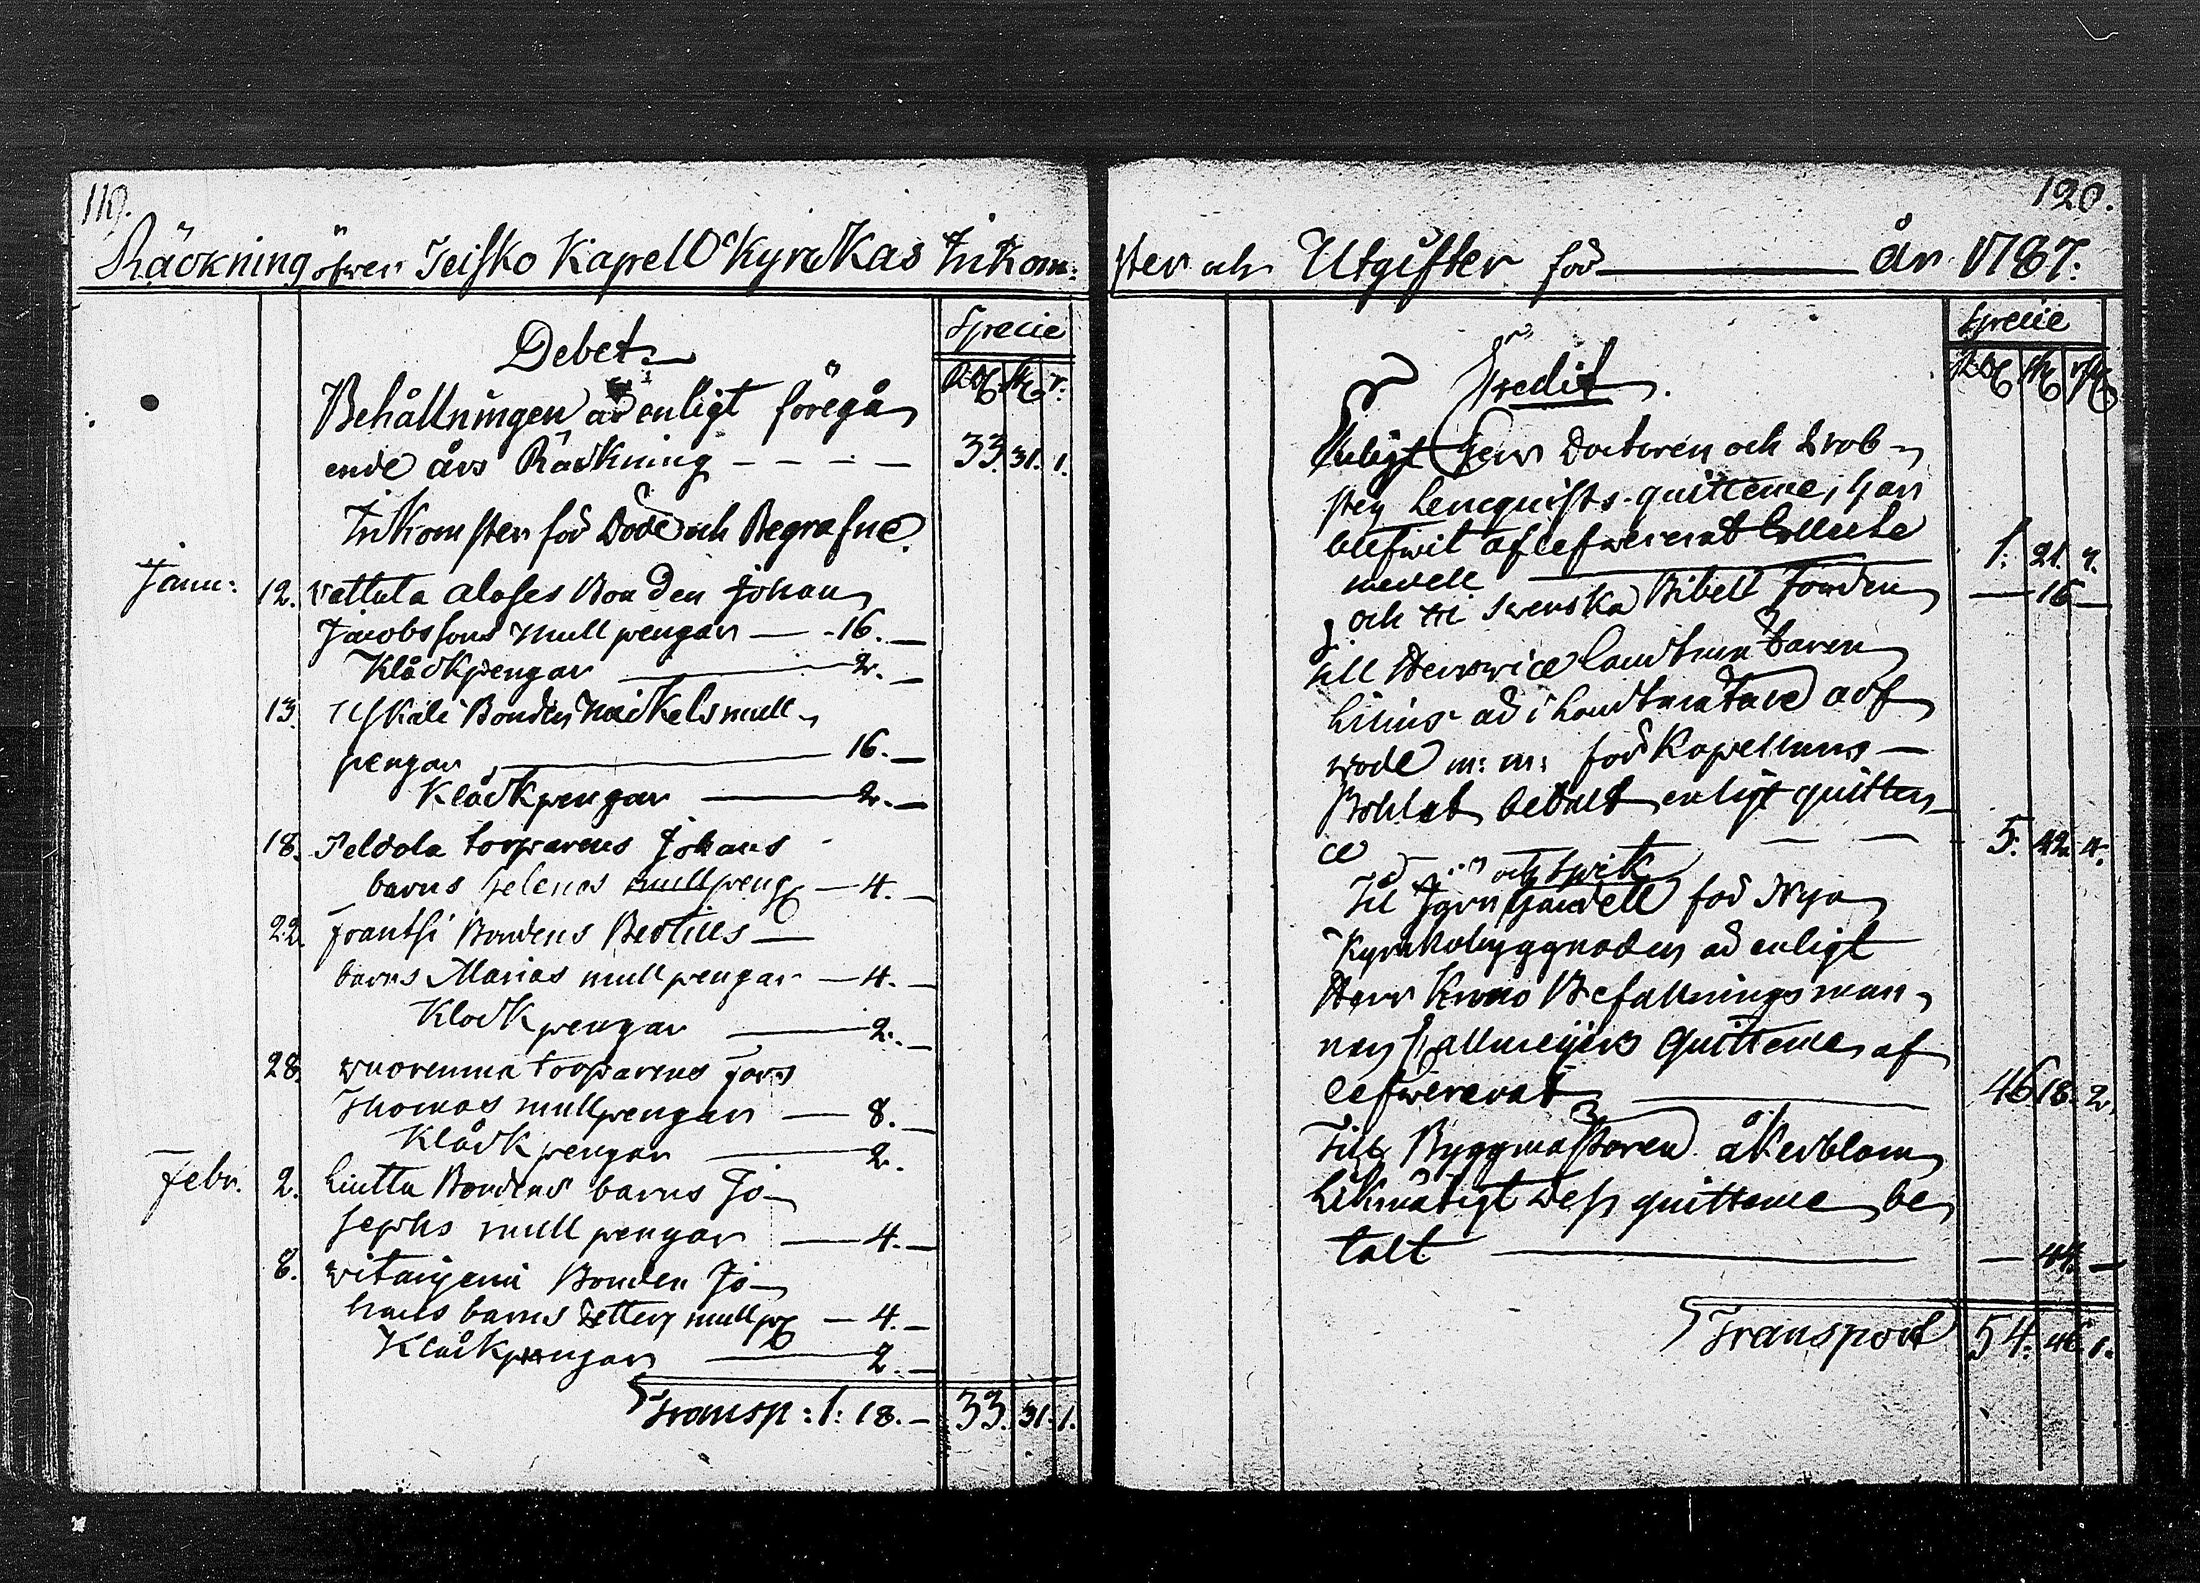 119.
Räckning öfwer Teisko Kapell Kyrckas Inkom:
Debet
Specie
Behållningen är enligt föregå
ende års Räckning - - - - 33. 31. 1.
Inkomster för Döde och Begrafne.
Janu: 12. Vattula aloses Bonden Johan
Jacobssons mullpengar — 16. —
Klåckpengar — 2. —
13. Uskali Bonden Mickels mull
pengar — 16. —
Klåckpengar — 2. —
18. Peldola torparens Johans
barns Helenas mullpeng — 4. —
22. Frantsi Bondens Bertills —
barns Marias mullpengar — 4. —
Klockpengar — 2. —
28. Wuorenma torparens Jörs
Thomas mullpengar — 8. —
Klåckpengar — 2.
Febr. 2. Liutta Bondens barns Jo
sephs mullpengar — 4. —
8. Witaijemi Bonden Jo
hans barns mullp — 4. —
Klåckpengar — 2. —
Transp: 1: 18. — 33. 31. 1.
120.
ster och Utgifter för — år 1787.
Specie
Credit.
Enligt Herr Doctoren och Prob
sten Lencquists quittence, har
blefwit aflefwererat Collecte
medell — 1. 21. 7.
och til Swenska Bibell Fonden — 16 —
till Herr Vice Landtmätaren
Linius är i Landtmätare arf
wode m: m: för Kapellans —
Bohlet betalt enligt quitten
ce — — 5. 42. 4.
och Spik
Til Järn Handell för Nya
Kyrkobyggnaden är enligt
Herr Krono Befallningsman
nen Hallmeijers Quittence af
lefwererat — 46. 18. 2.
Till Byggmästaren Åkerblom
Likmätigt dess quittence be
talt — — 44. —
Transport 54. 46. 1.